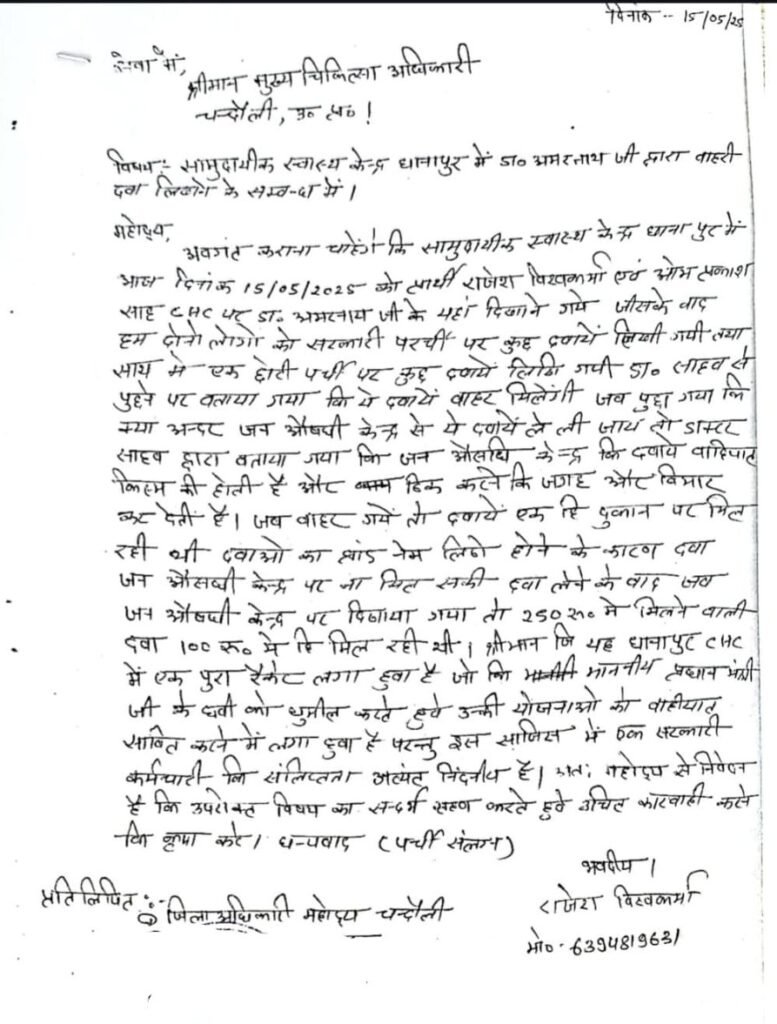 दिनांक -- 15/05/25
सेवा में,
श्रीमान मुख्य चिकित्सा अधिकारी
चन्दौली, उ० प्र० !
विषय :- सामुदायीक स्वास्थ्य केन्द्र धानापुर में डा० अमरनाथ जी द्वारा बाहरी
दवा लिखने के सम्बन्ध में ।
महोदय,
अवगत कराना चाहेंगे कि सामुदायीक स्वास्थ्य केन्द्र धानापुर में
आज दिनांक 15/05/2025 को प्रार्थी राजेश विश्वकर्मा एवं ओम प्रकाश
साह CHC पर डा० अमरनाथ जी के यहां दिखाने गये जीसके बाद
हम दोनो लोगो को सरकारी परर्ची पर कुछ दवायें लिखी गयी तथा
साथ मे एक छोटी पर्ची पर कुछ दवायें लिखि गयी डा० साहब से
पुछने पर बताया गया कि ये दवायें बाहर मिलेंगी जब पुछा गया कि
क्या अन्दर जन औषधी केन्द्र से ये दवायें ले ली जाय तो डाक्टर
साहब द्वारा बताया गया कि जन औसधि केन्द्र कि दवाये वाहियात
किस्म की होती है और ठिक करने कि जगह और बिमार
कर देती है । जब बाहर गयें तो दवायें एक हि दुकान पर मिल
रही थी दवाओ का ब्रांड नेम लिखे होने के कारण दवा
जन औसधी केन्द्र पर ना मिल सकी दवा लेने के बाद जब
जन औषधी केन्द्र पर दिखाया गया तो 250 रू० मे मिलने वाली
दवा 100 रू० मे हि मिल रही थी । श्रीमान जि यह धानापुर CHC
में एक पुरा रैकेट लगा हुवा है जो कि माननीय प्रधान मंत्री
जी के छवी को धुमील करते हुवे उनकी योजनाओ को वाहीयात
साबित करने में लगा हुवा है परन्तु इस साजिस में एक सरकारी
कर्मचारी कि संलिप्तता अत्यंत निंदनीय है । अतः महोदय से निवेदन
है कि उपरोक्त विषय का सन्दर्भ ग्रहण करते हुवे उचित कारवाही करने
कि कृपा करे । धन्यवाद (पर्ची संलग्न)
भवदीय ।
राजेश विश्वकर्मा
मो० - 6394819631
प्रतिलिपित :-
① जिला अधिकारी महोदय चन्दौली